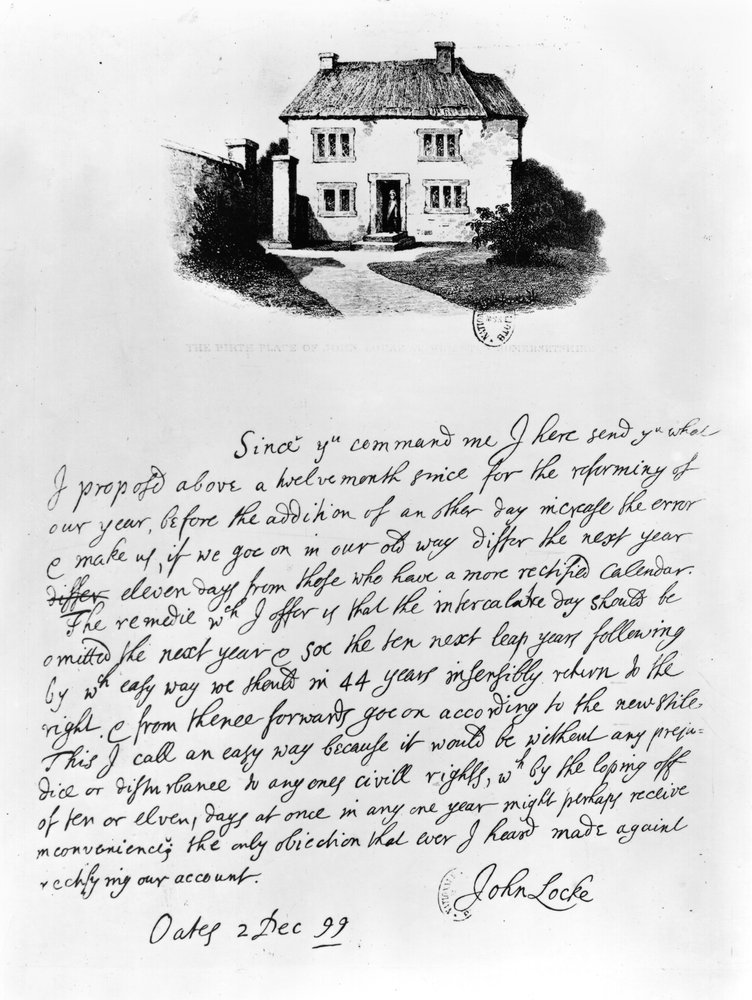 THE BIRTH PLACE OF JOHN LOCKE
SOMERSETSHIRE
Since yu command me I here send yu what
I propos'd above a twelvemonth since for the reforming of
our year, before the addition of an other day increase the error
& make us, if we goe on in our old way differ the next year
differ eleven days from those who have a more rectified Calendar.
The remedie wch I offer is that the intercalare day should be
omitted the next year & soe the ten next leap years following
by wch easy way we should in 44 years insensibly return to the
right & from thence forwards goe on according to the new stile.
This I call an easy way because it would be without any preju-
dice or disturbance to any ones civill rights, wch by the loping off
of ten or eleven, days at once in any one year might perhaps receive
inconvenience, the only objection that ever I heard made against
rectifying our account.
John Locke
Oates 2 Dec 99